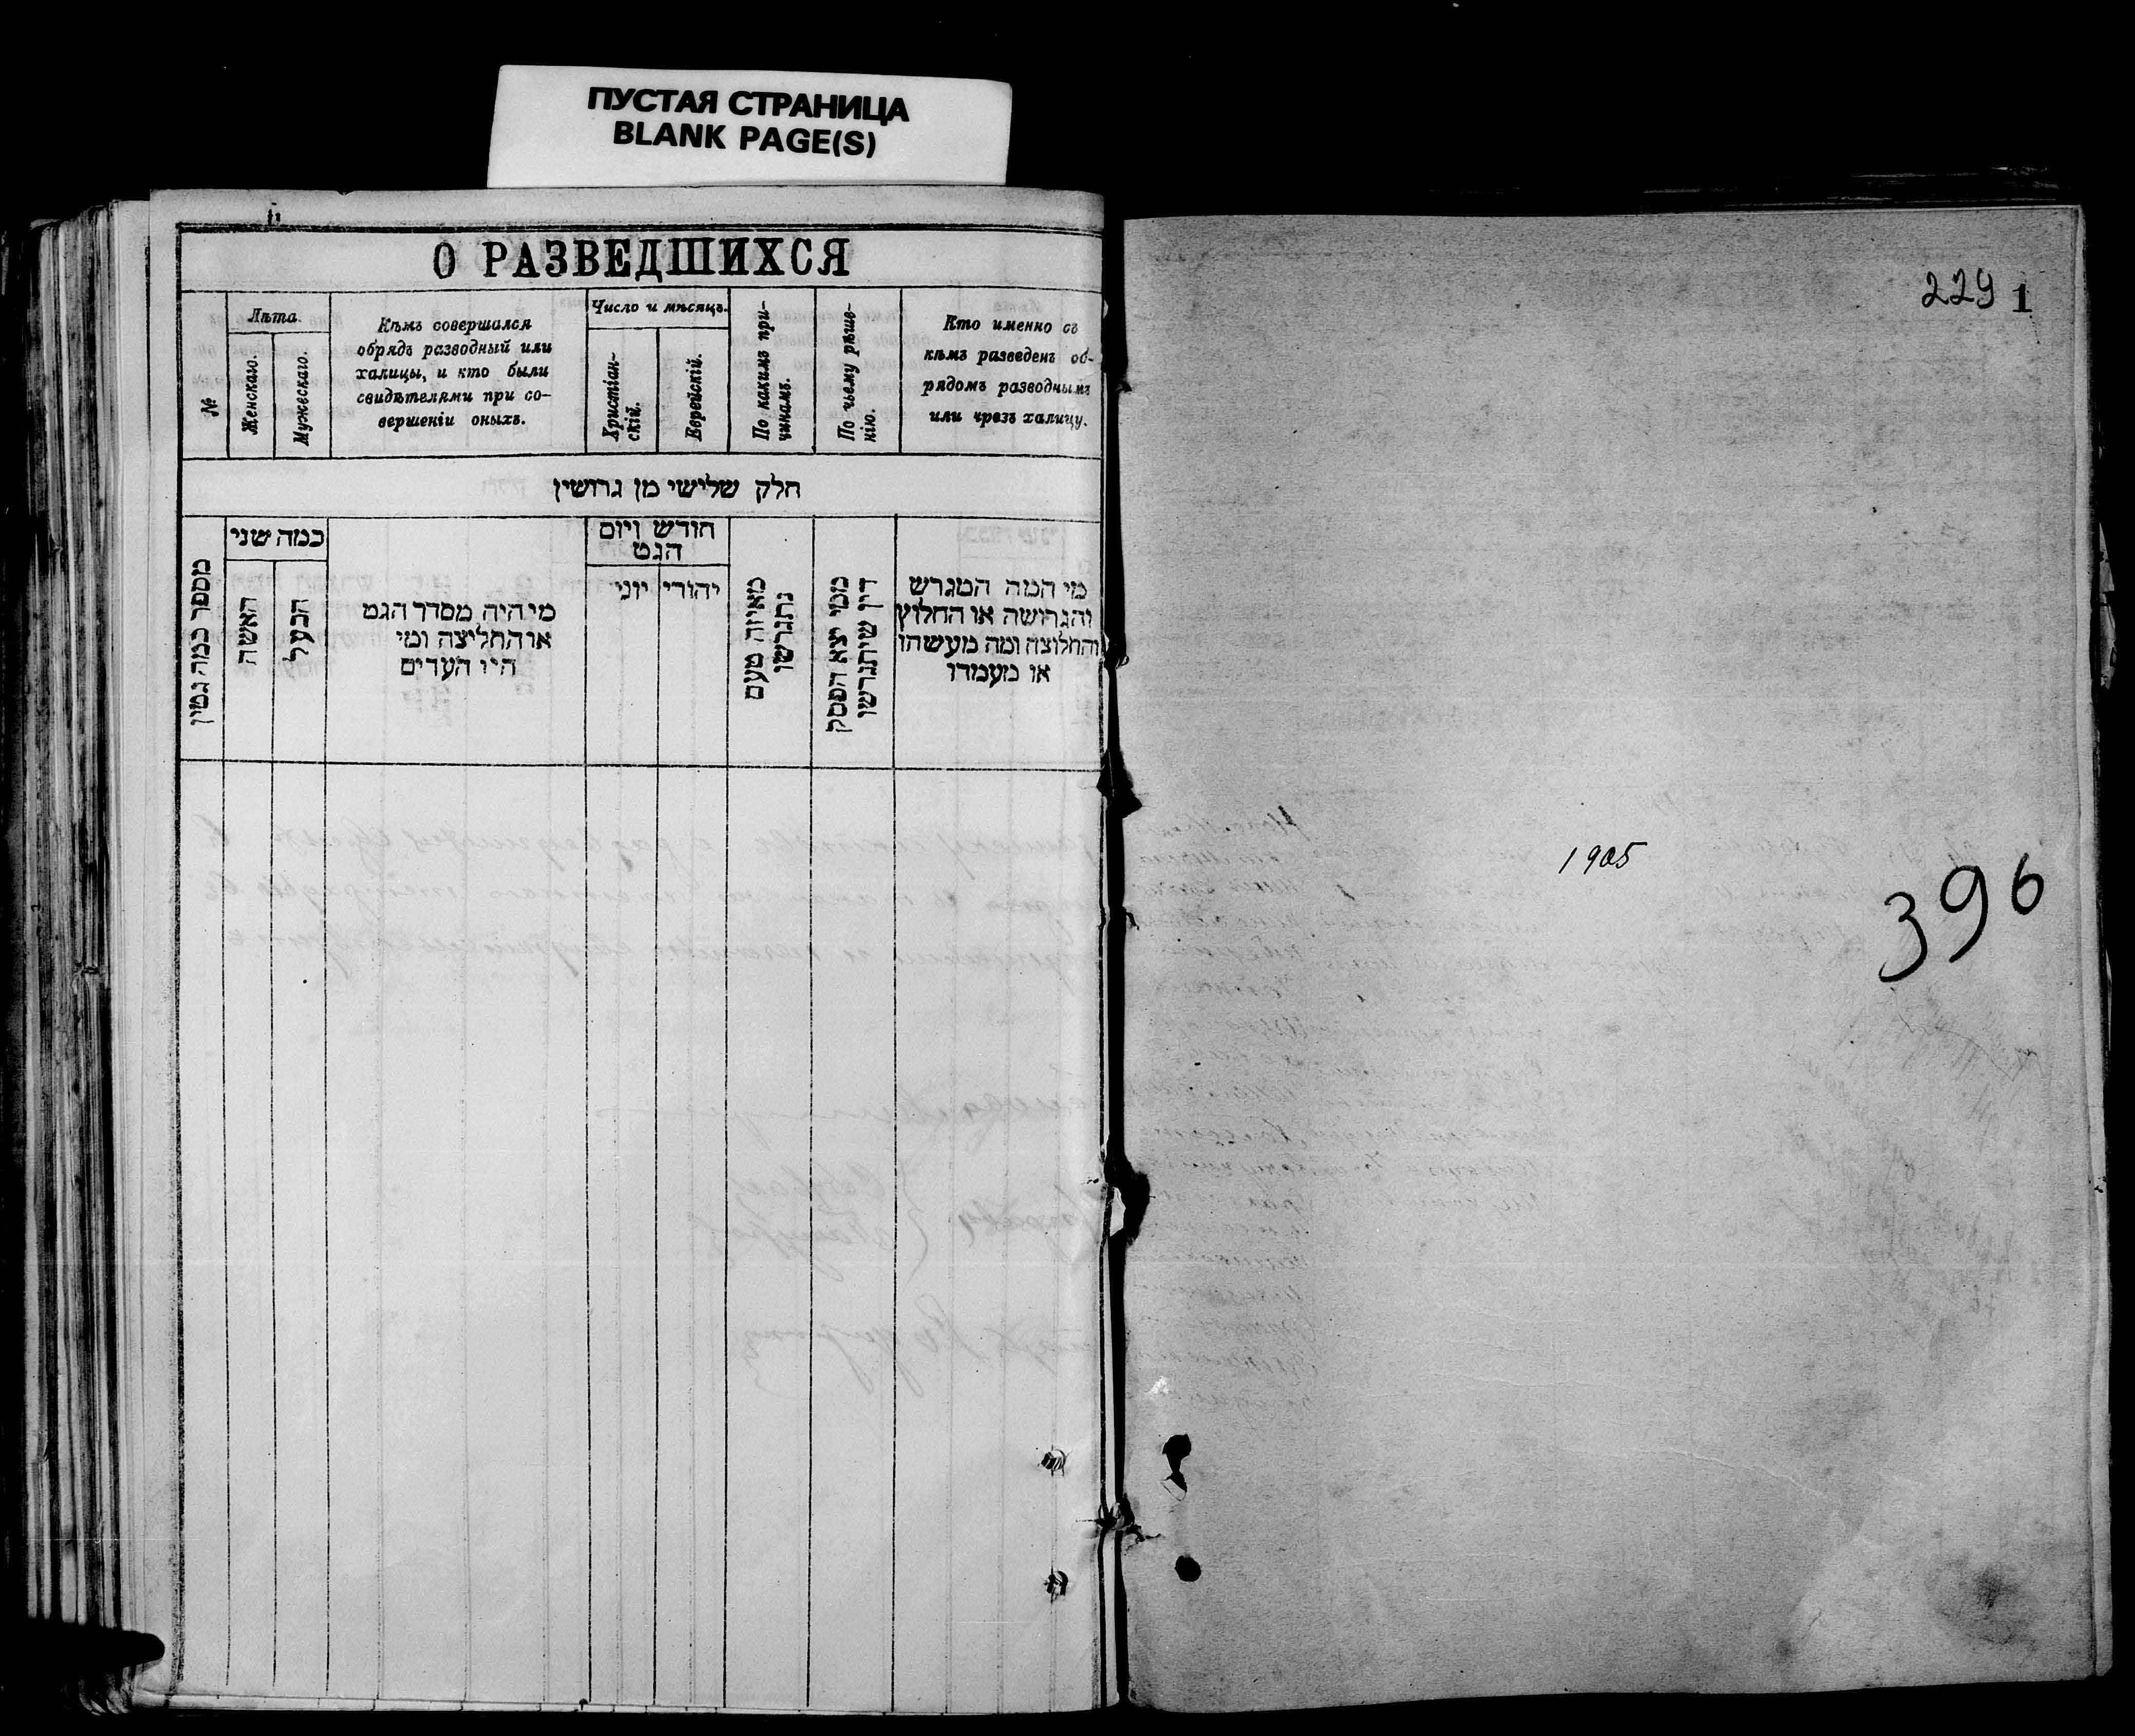 ПУСТАЯ СТРАНИЦА
BLANK PAGE(S)
О РАЗВЕДШИХСЯ
№
Лѣта.
Женскаго.
Мужескаго.
Кѣмъ совершался
обрядъ разводный или
халицы, и кто были
свидѣтелями при со-
вершеніи оныхъ.
Число и мѣсяцъ.
Христіан-
скій.
Еврейскій.
По какимъ при-
чинамъ.
По чьему рѣше-
нію.
Кто именно съ
кѣмъ разведенъ об-
рядомъ разводнымъ
или чрезъ халицу.
חלק שלישי מן גרושין
מספר כמה גטין
כמה שני
האשה
הבעל
מי היה מסדר הגט
או החליצה ומי
היו העדים
חודש ויום
הגט
יוני
יהודי
מאיזה טעם
נתגרשו
ממי יצא הפסק
דין שיתגרשו
מי המה המגרש
והגרושה או החלוץ
והחלוצה ומה מעשהו
או מעמדו
229 1
1905
396